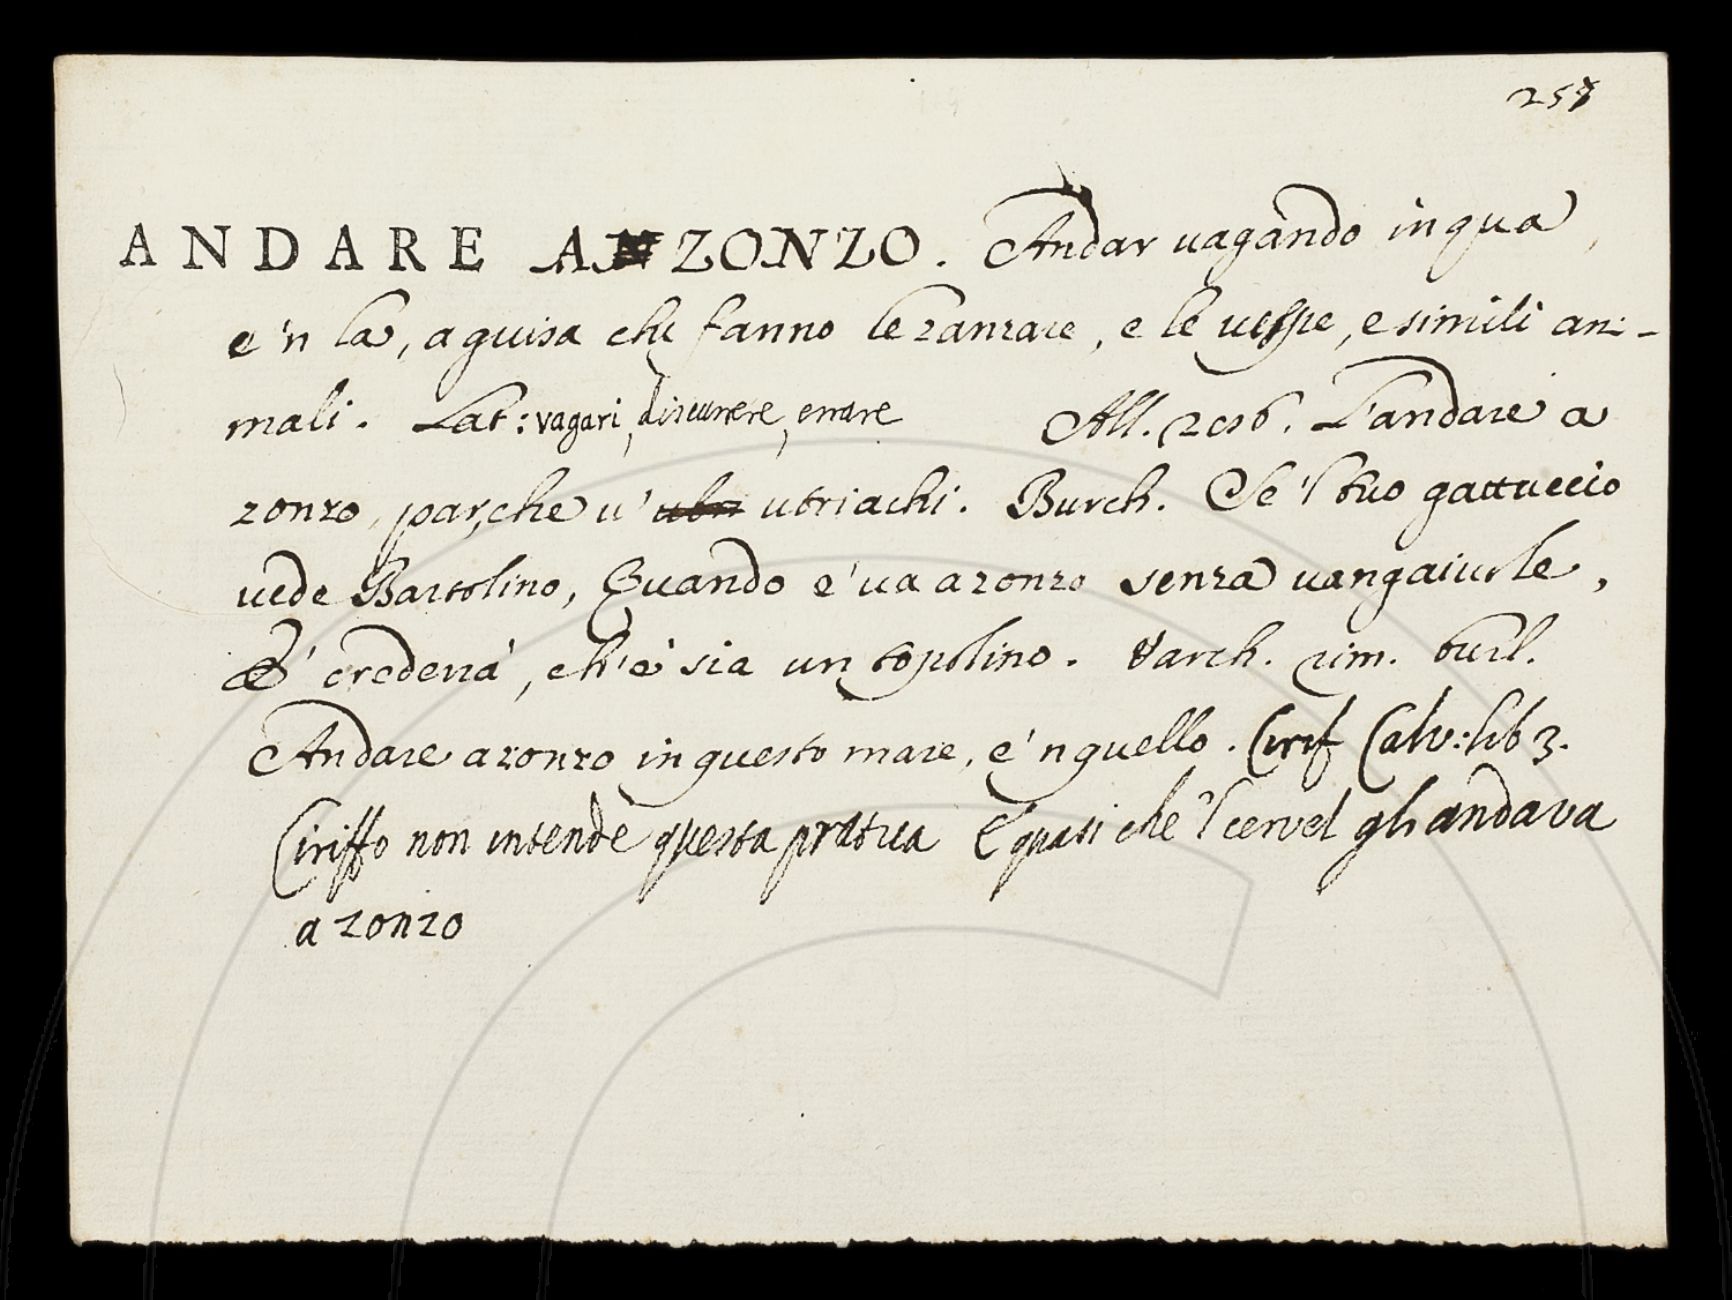 257
ANDARE A ZONZO. Andar uagando in qua,
e 'n la, a guisa che fanno le zanzare, e le uespe, e simili ani-
mali. Lat: vagari, discurrere, errare All. 206. L'andare a
zonzo, par, che u' ubriachi. Burch. Se 'l tuo gattuccio
uede Bartolino, Quando e' ua a zonzo senza uangaiuole,
E' crederrà, ch' e' sia un topolino. Varch. rim. burl.
Andare a zonzo in questo mare, e 'n quello. Cirif Calv: lib 3.
Ciriffo non intende questa pratica E quasi che 'l cervel gli andava
a zonzo